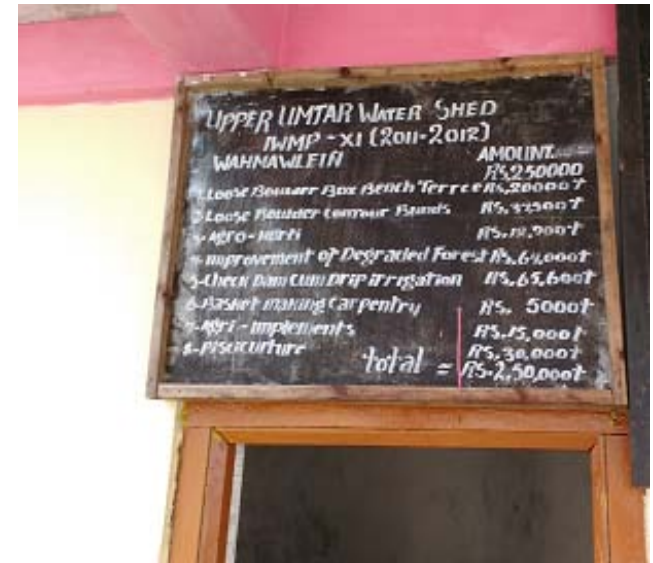 UPPER UMTAR WATER SHED
IWMP - XI (2011-2012)
WAHMAWLEIN AMOUNT
Rs. 250000
1. Loose Boulder Box Bench Terrce Rs. 20000/-
2. Loose Boulder Contour Bunds
3- Agro-Horti
4- Improvement of Degraded Forest Rs. 64,000/-
5-Check Dam Cum Drip irrigation Rs. 65,600/-
6-Basket making Carpentry Rs. 5000/-
7- Agri - implements Rs. 15,000/-
8- Pisciculture Rs. 30,000/-
total = Rs. 2,50,000/-